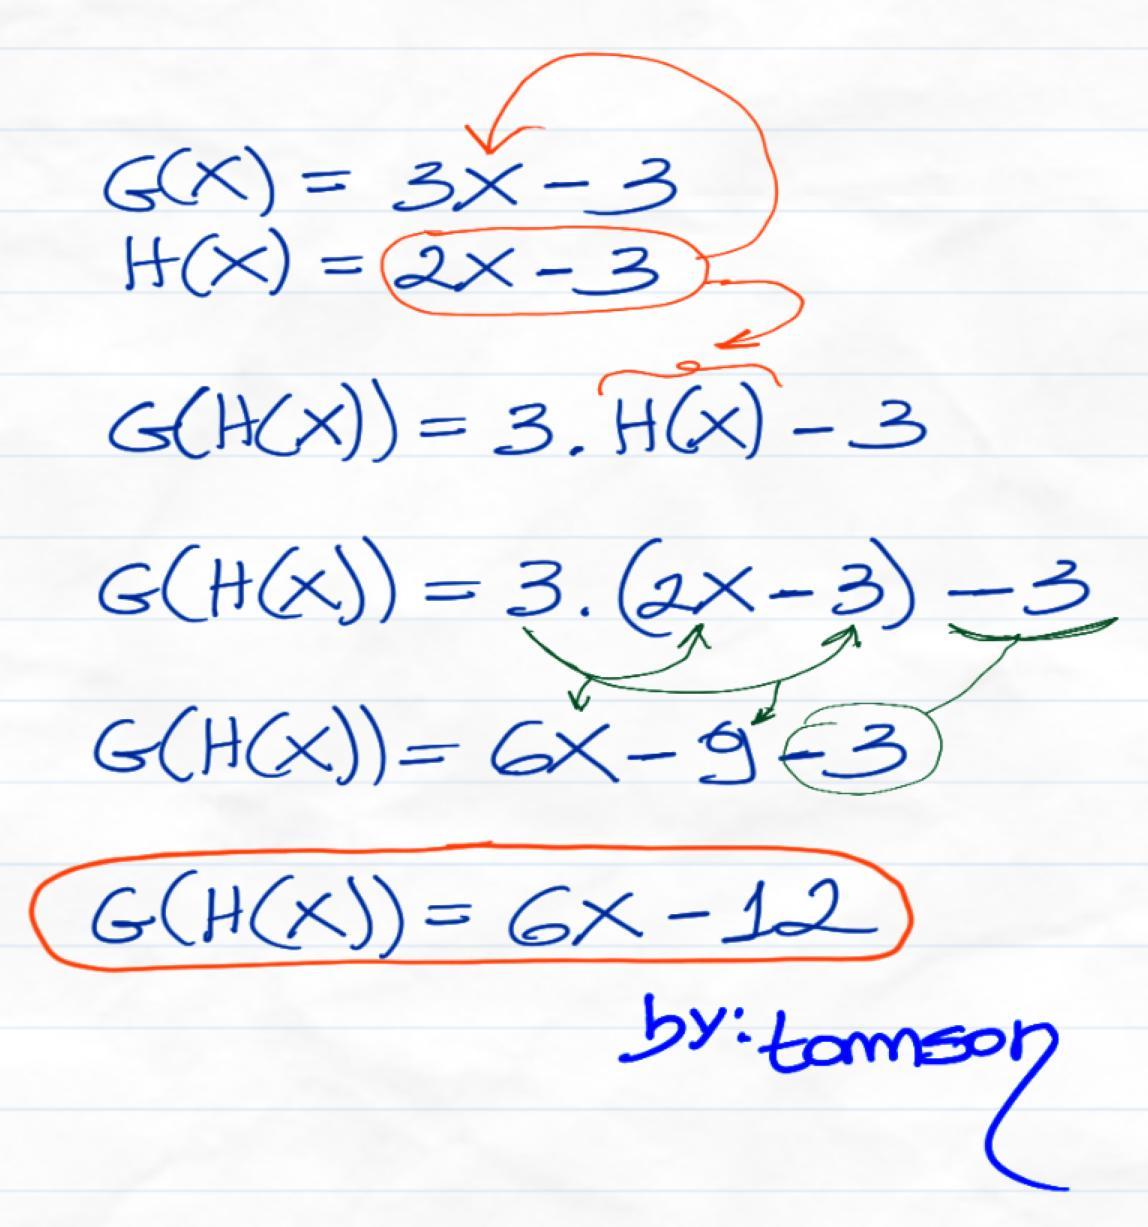 G(X) = 3X - 3
H(X) = 2X - 3
G(H(X)) = 3 . H(X) - 3
G(H(X)) = 3 . (2X - 3) - 3
G(H(X)) = 6X - 9 - 3
G(H(X)) = 6X - 12
by: tomson